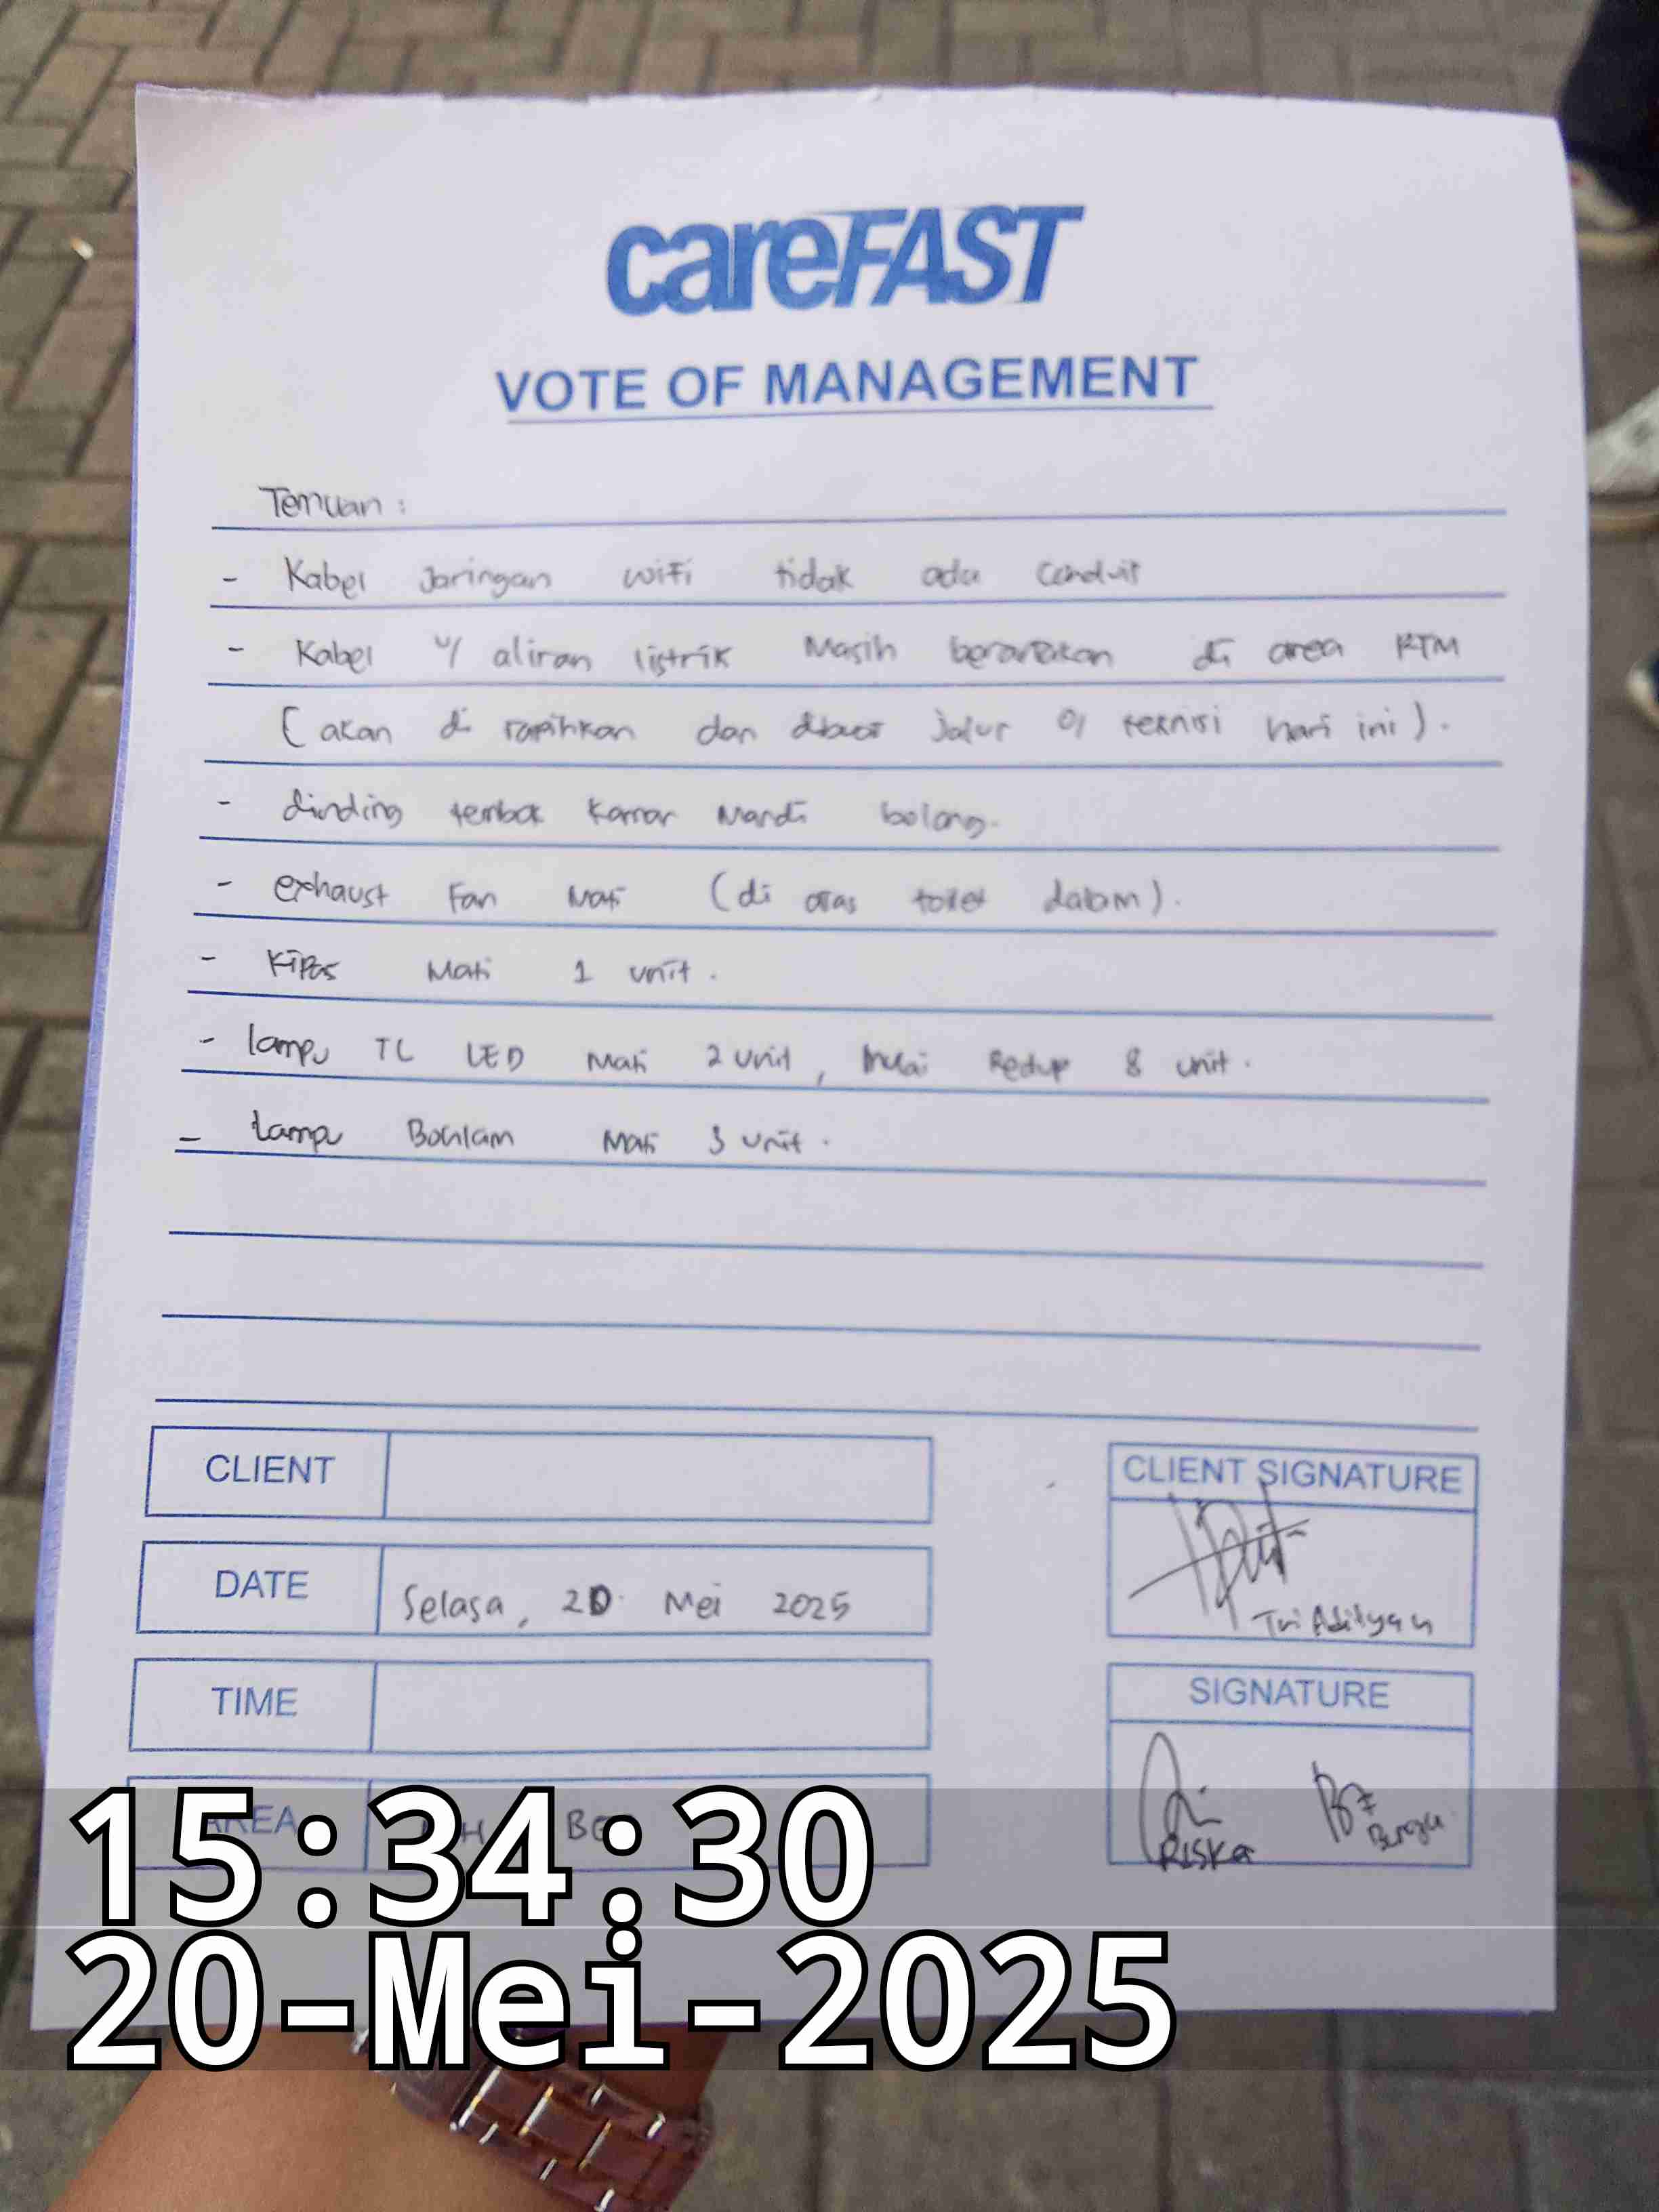 careFAST
VOTE OF MANAGEMENT
Temuan :
- Kabel Jaringan wifi tidak ada Conduit
- Kabel u/ aliran listrik Masih berantakan di area RTM
( akan di rapihkan dan dibuat jalur o/ teknisi hari ini ).
- dinding tembok kamar Mandi bolong.
- exhaust Fan Mati (di atas toilet dalam).
- Kipas Mati 1 unit.
- lampu TL LED Mati 2 unit, Mulai Redup 8 unit.
- lampu Bohlam Mati 3 unit.
CLIENT
CLIENT SIGNATURE
Tri Adityan
DATE Selasa, 20 Mei 2025
TIME
SIGNATURE
RISKA
AREA
15:34:30
20-Mei-2025